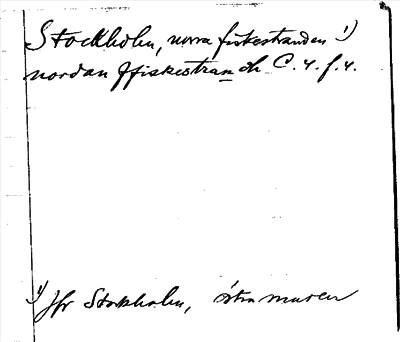 Stockholm, norra fiskestranden 1)
nordan ffiskestrandh C. 4. f. 4.
1) Jfr Stockholm, östra muren